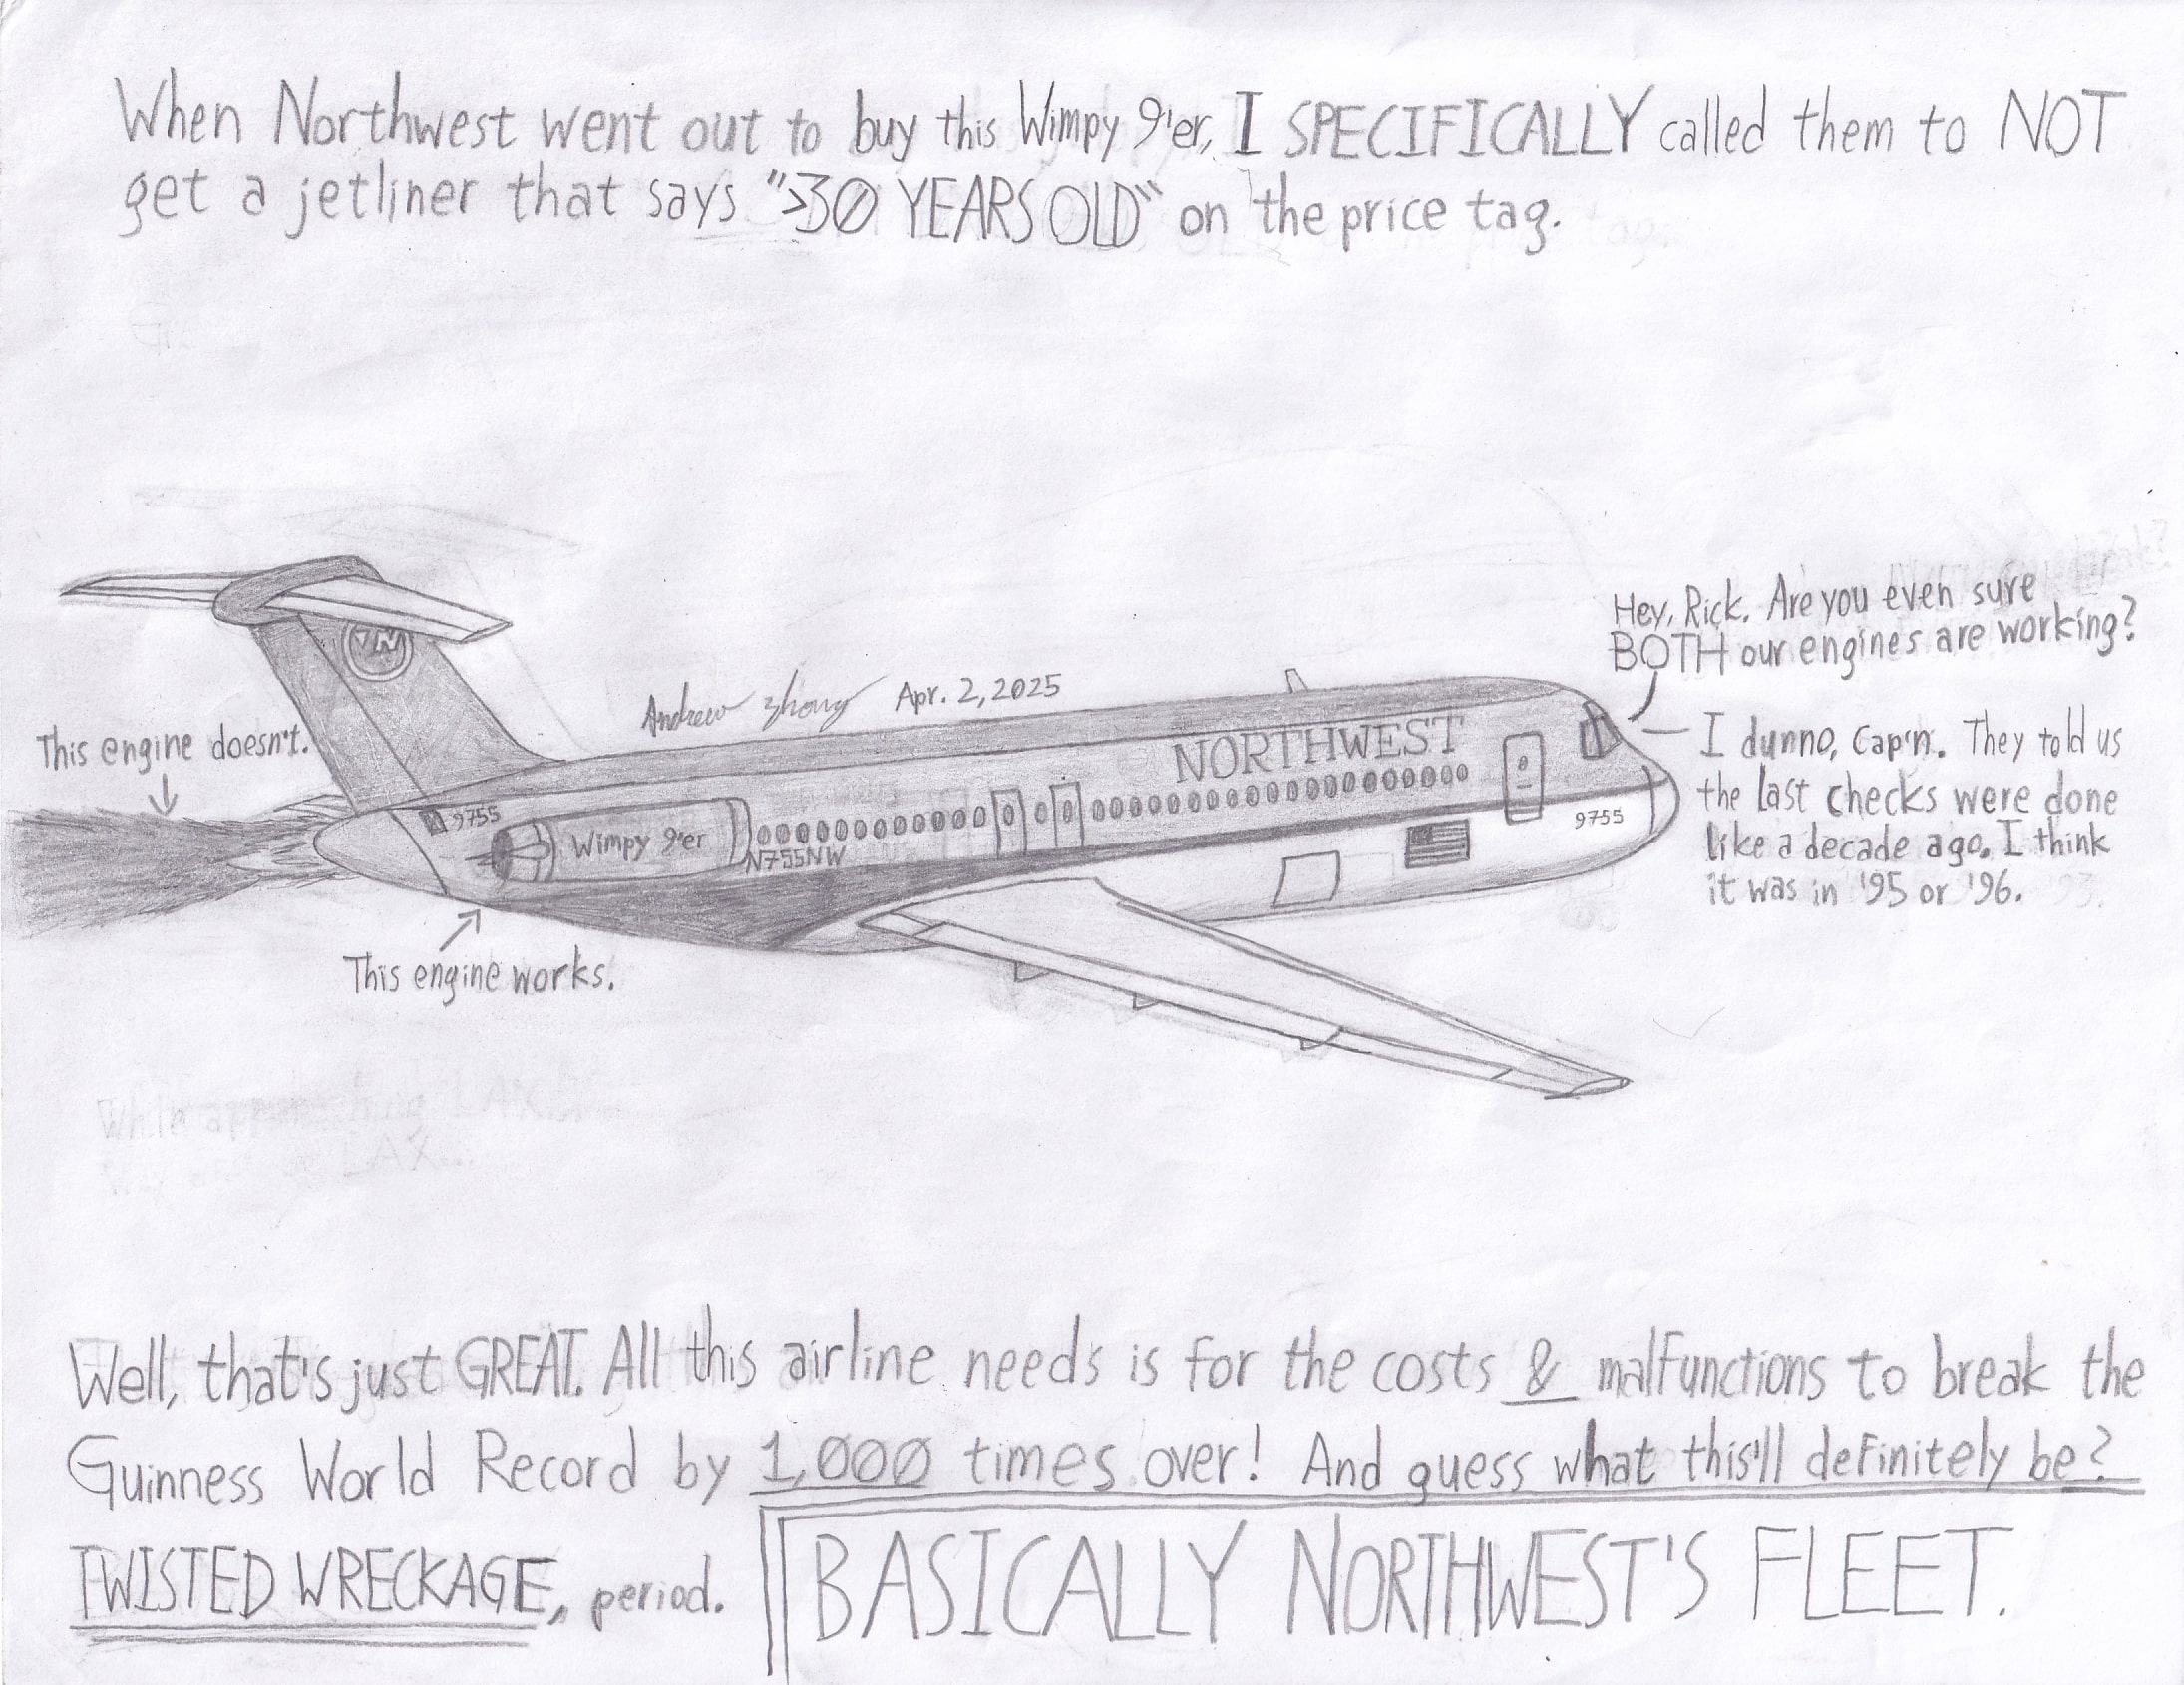 When Northwest went out to buy this Wimpy 9'er, I SPECIFICALLY called them to NOT
get a jetliner that says ">30 YEARS OLD" on the price tag.
Hey, Rick. Are you even sure
BOTH our engines are working?
I dunno, Cap'n. They told us
the last checks were done
like a decade ago. I think
it was in '95 or '96.
Andrew Zhong Apr. 2, 2025
NORTHWEST
This engine doesn't.
9755
Wimpy 9'er
N755NW
9755
This engine works.
Well, that's just GREAT. All this airline needs is for the costs & malfunctions to break the
Guinness World Record by 1,000 times over! And guess what this'll definitely be?
TWISTED WRECKAGE, period.
BASICALLY NORTHWEST'S FLEET.